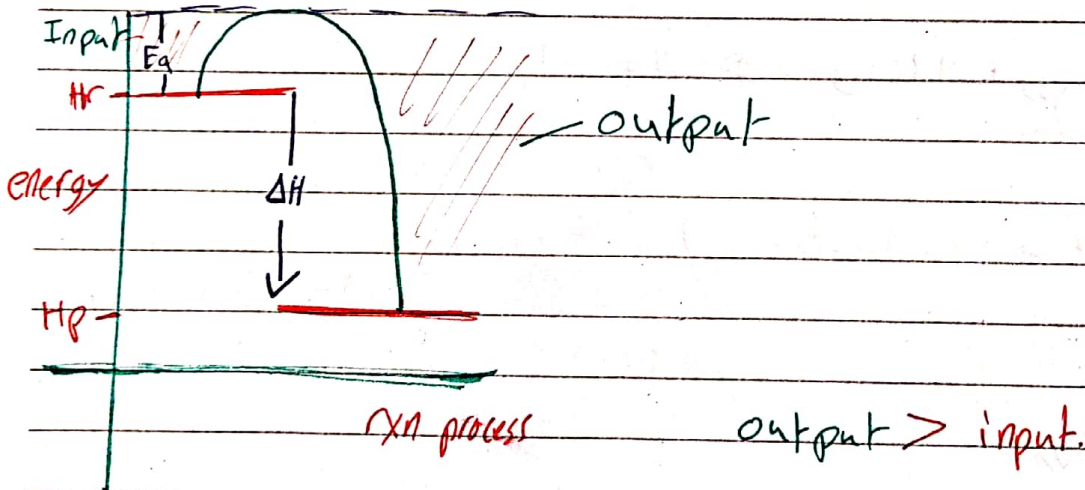 Input
Ea
Hr
output
energy
ΔH
Hp
rxn process
output > input.